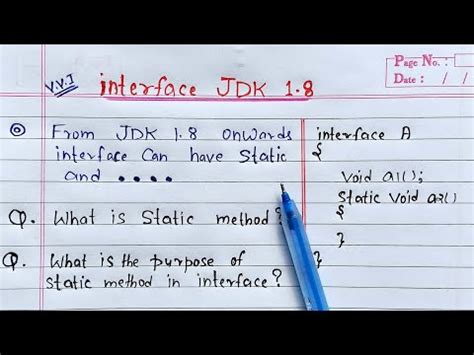 Page No. :
Date : / /
V.V.I
interface JDK 1.8
From JDK 1.8 onwards
interface Can have Static
and • • • •
Q. What is Static method ?
Q. What is the purpose of
static method in interface ?
interface A
{
void a1();
Static void a2()
{
}
}